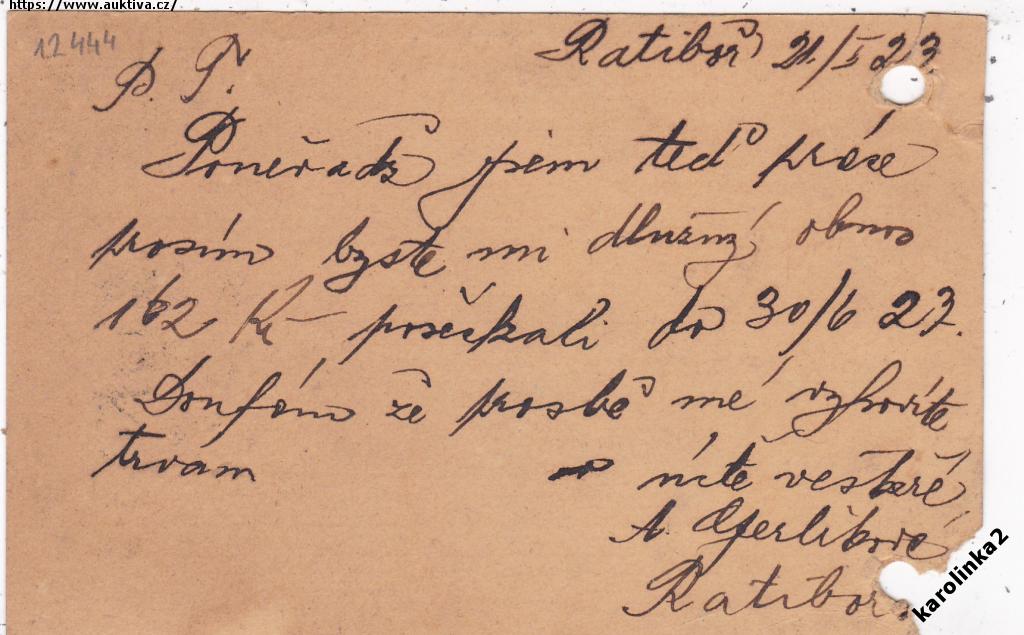 https://www.auktiva.cz/
12444
Ratiboř 21/I 23.
P. T.
jsem teď práce
prosím byste mi dlužný obnos
162 Kč posečkali do 30/6 23.
Doufám že prosbě mé vyhovíte
trvám v úctě veškeré
A. Gerlíková
Ratiboř.
karolinka2